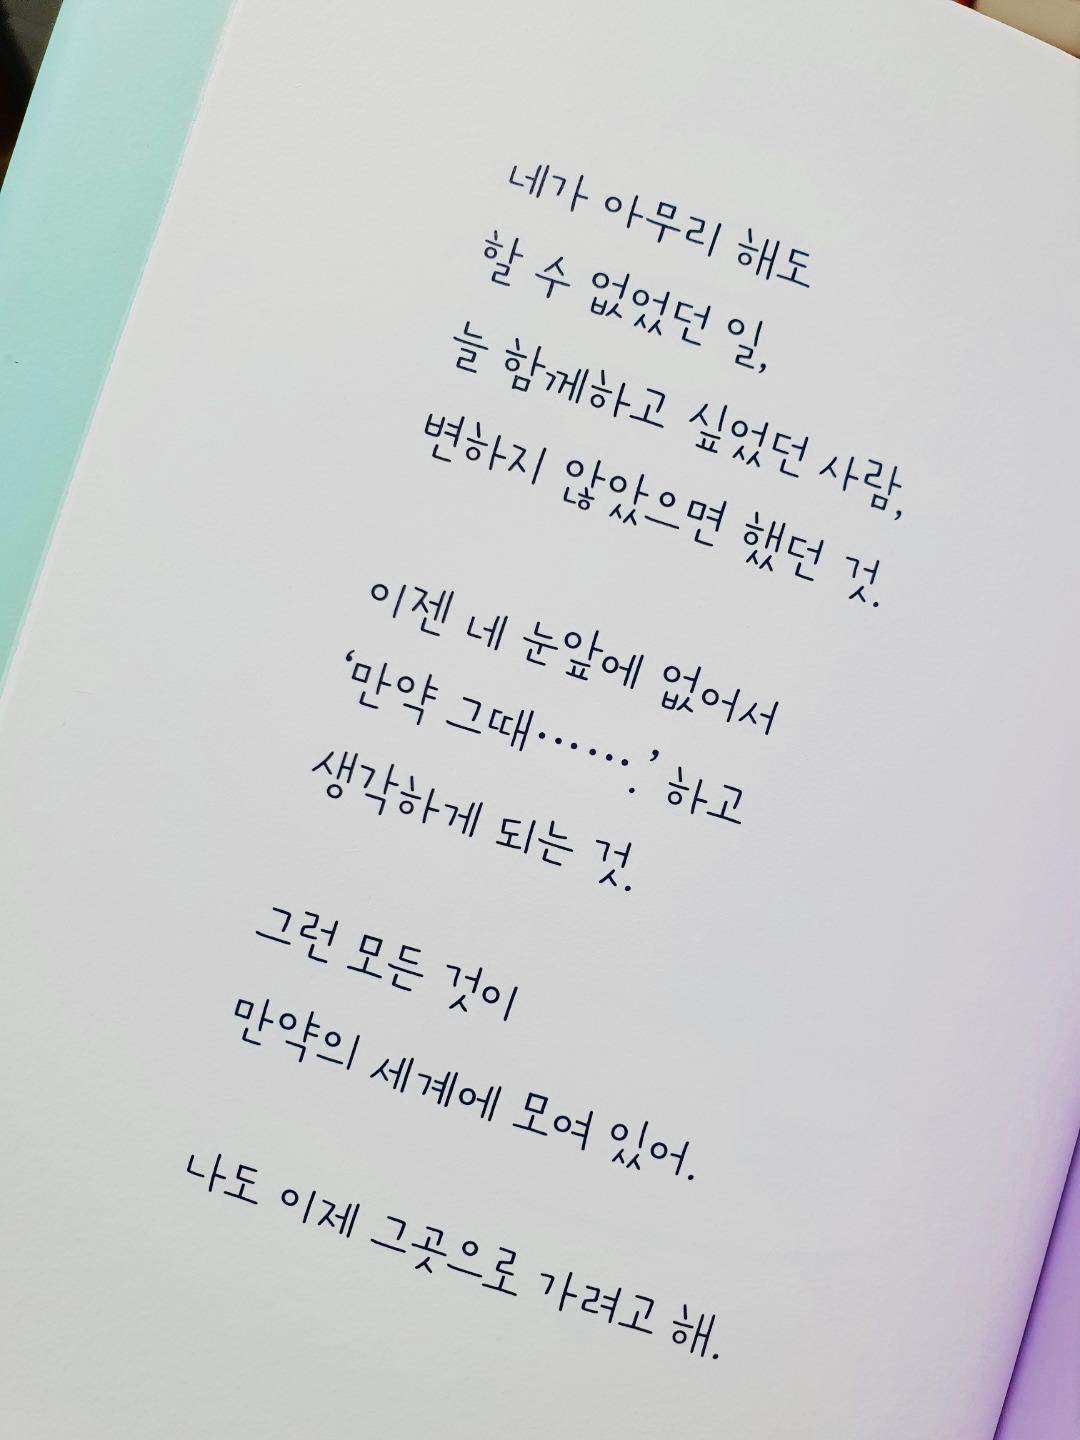 네가 아무리 해도
할 수 없었던 일,
늘 함께하고 싶었던 사람,
변하지 않았으면 했던 것.
이젠 네 눈앞에 없어서
‘만약 그때…….’ 하고
생각하게 되는 것.
그런 모든 것이
만약의 세계에 모여 있어.
나도 이제 그곳으로 가려고 해.